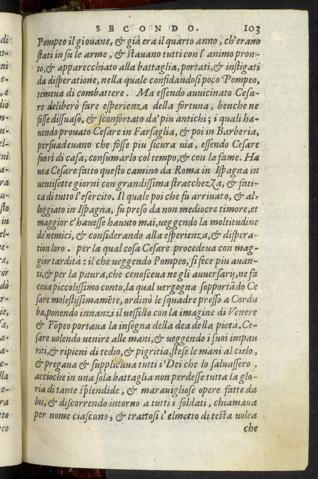 SECONDO. 103
Pompeo il giouane, & già era il quarto anno, ch'erano
stati in sù le arme, & stauano tutti con l'animo pron-
to, & apparecchiato alla battaglia, portati, & instigati
da disperatione, nella quale confidandosi poco Pompeo,
temeua di combattere. Ma essendo auuicinato Cesa-
re deliberò fare esperienza della fortuna, benche ne
fosse dissuaso, & sconfortato da' piu antichi; i quali ha-
uendo prouato Cesare in Farsaglia, & poi in Barberia,
persuadeuano che fosse piu sicura uia, essendo Cesare
fuori di casa, consumarlo col tempo, & con la fame. Ha
uea Cesare fatto questo camino da Roma in Ispagna in
uentisette giorni con grandissima stracchezza, & fati-
ca di tutto l'esercito. Il quale poi che fu arriuato, & al-
loggiato in Ispagna, fu preso da non mediocre timore, et
maggior c'hauesse hauuto mai, ueggendo la moltitudine
de' nemici, & considerando alla esperienza, & dispera-
tion loro. per la qual cosa Cesare procedeua con mag-
gior tardità: il che ueggendo Pompeo, si fece piu auan-
ti, & per la paura, che conosceua negli auuersarij, ne fa
ceua picciolissimo conto, la qual uergogna sopportādo Ce
sare molestissimamēte, ordinò le squadre presso a Cordu
ba, ponendo innanzi il uessillo con la imagine di Venere
& Pōpeo portaua la insegna della dea della pietà. Ce-
sare uolendo uenire alle mani, & ueggendo i suoi impau
riti, & ripieni di tedio, & pigritia, stese le mani al cielo,
& pregaua & supplicaua tutti i Dei che lo saluassero,
accioche in una sola battaglia non perdesse tutta la glo-
ria di tante splendide, & marauigliose opere fatte da
lui, & discorrendo intorno a tutti i soldati, chiamaua
per nome ciascuno, & trattosi l'elmetto di testa uolea
che